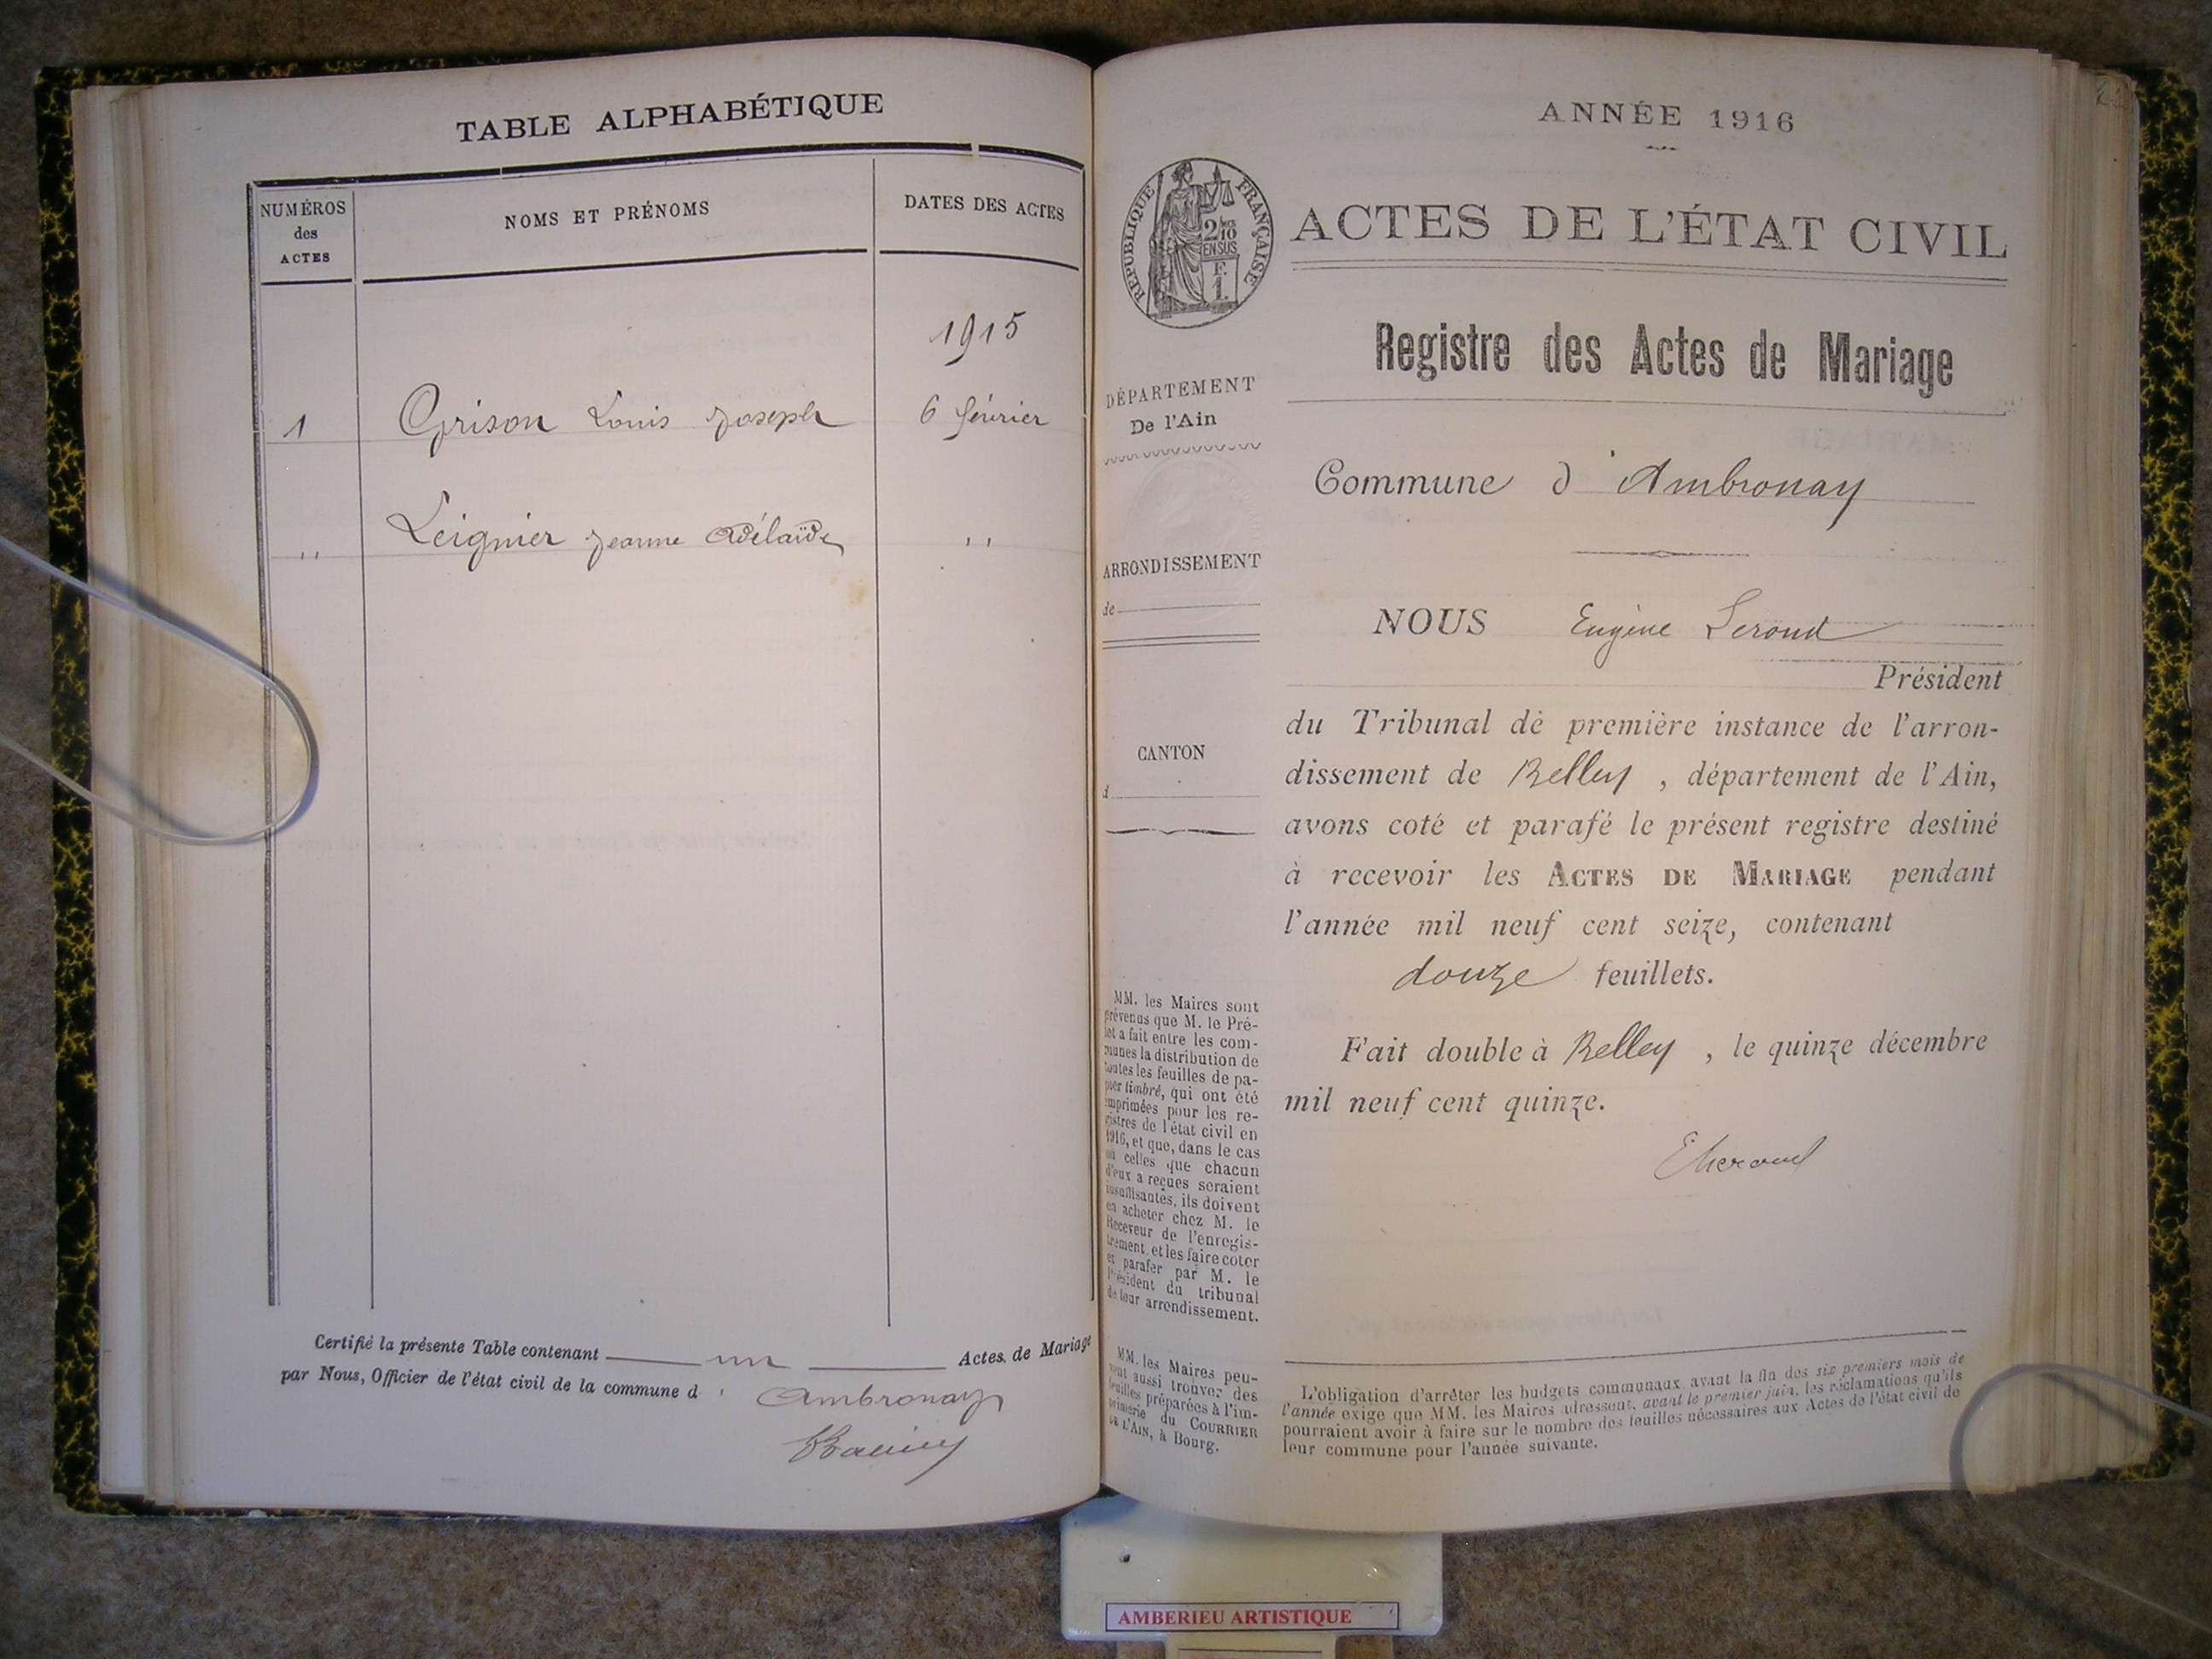 TABLE ALPHABÉTIQUE
NUMÉROS
des
ACTES
NOMS ET PRÉNOMS
DATES DES ACTES
1915
1 Grison Louis Joseph 6 février
,, Leignier Jeanne Adélaïde ,,
Certifié la présente Table contenant un Actes de Mariage
par Nous, Officier de l'état civil de la commune d' Ambronay
ANNÉE 1916
RÉPUBLIQUE FRANÇAISE
2/10
EN SUS
F.
1.
ACTES DE L'ÉTAT CIVIL
Registre des Actes de Mariage
DÉPARTEMENT
De l'Ain
ARRONDISSEMENT
de
CANTON
d
MM. les Maires sont
prévenus que M. le Pré-
fet a fait entre les com-
munes la distribution de
toutes les feuilles de pa-
pier timbré, qui ont été
imprimées pour les re-
gistres de l'état civil en
1916, et que, dans le cas
où celles que chacun
d'eux a reçues seraient
insuffisantes, ils doivent
en acheter chez M. le
Receveur de l'enregis-
trement, et les faire coter
et parafer par M. le
Président du tribunal
de leur arrondissement.
MM. les Maires peu-
vent aussi trouver des
feuilles préparées à l'im-
primerie du COURRIER
DE L'AIN, à Bourg.
Commune d'Ambronay
NOUS Eugène Seroud
Président
du Tribunal de première instance de l'arron-
dissement de Belley, département de l'Ain,
avons coté et parafé le présent registre destiné
à recevoir les ACTES DE MARIAGE pendant
l'année mil neuf cent seize, contenant
douze feuillets.
Fait double à Belley, le quinze décembre
mil neuf cent quinze.
L'obligation d'arrêter les budgets communaux avant la fin des six premiers mois de
l'année exige que MM. les Maires adressent, avant le premier juin, les réclamations qu'ils
pourraient avoir à faire sur le nombre des feuilles nécessaires aux Actes de l'état civil de
leur commune pour l'année suivante.
AMBERIEU ARTISTIQUE